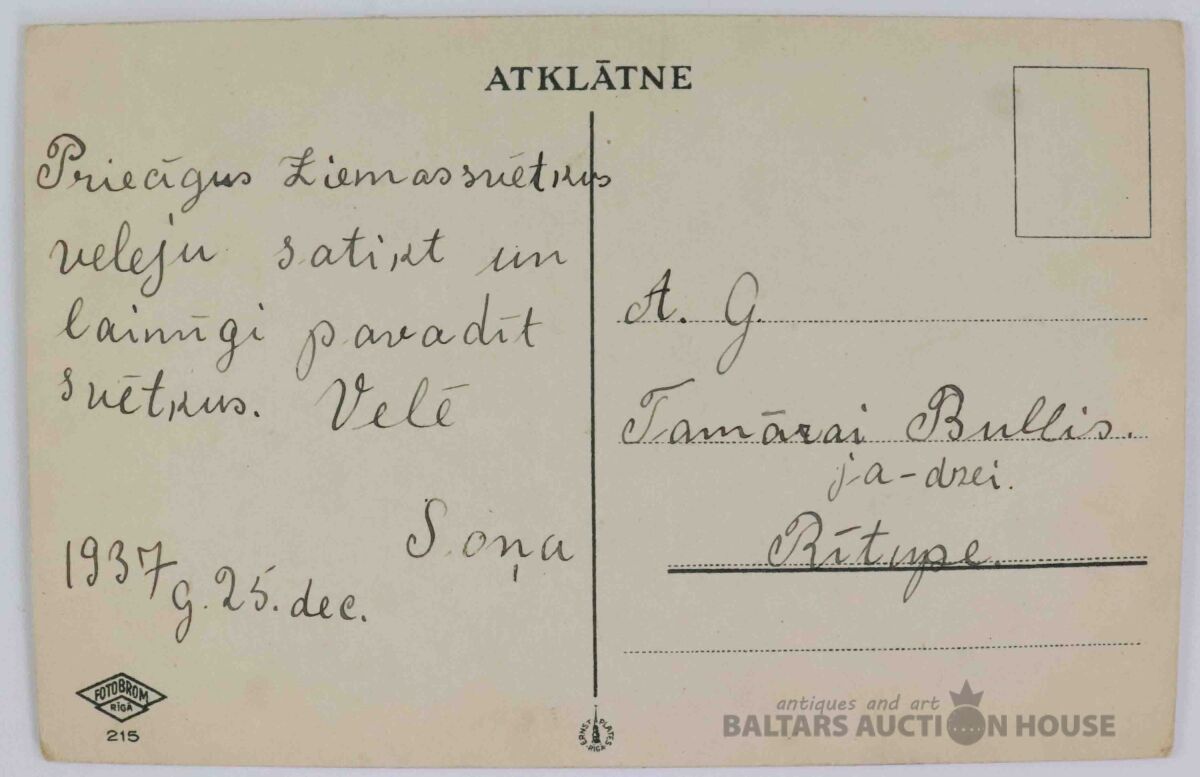 ATKLĀTNE
Priecīgus Ziemassvētkus
veleju satikt un
laimīgi pavadīt
svētkus. Velē
Soņa
1937 g. 25. dec.
A. G.
Tamārai Bullis.
j-a-dzei.
Rītupe.
FOTOBROM
RĪGA
215
ERNST PLATES RIGA
antiques and art
BALTARS AUCTION HOUSE